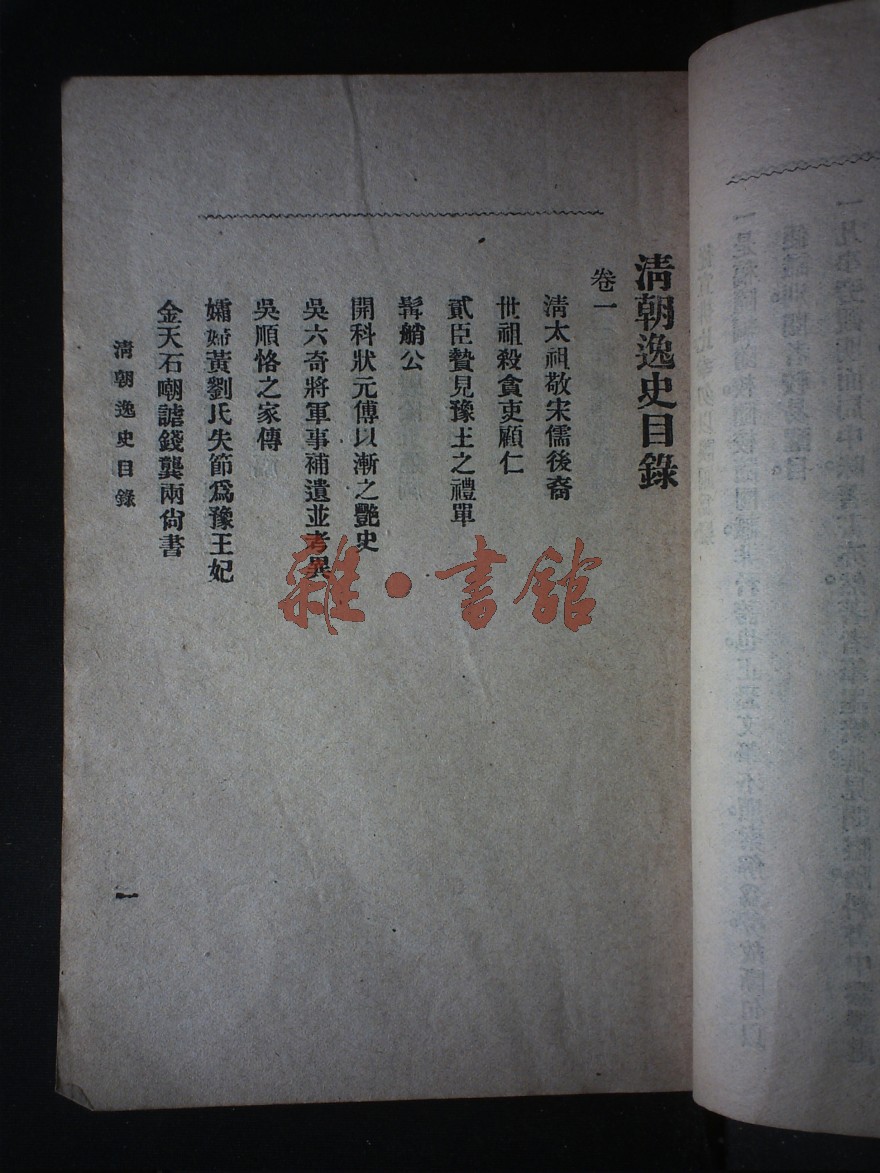 清朝逸史目錄
卷一
清太祖敬宋儒後裔
世祖殺貪吏顧仁
貳臣贄見豫王之禮單
髯艄公
開科狀元傅以漸之艷史
吳六奇將軍事補遺並考異
吳順恪之家傳
孀婦黃劉氏失節爲豫王妃
金天石嘲謔錢龔兩尙書
清朝逸史目錄
一
雜·書館